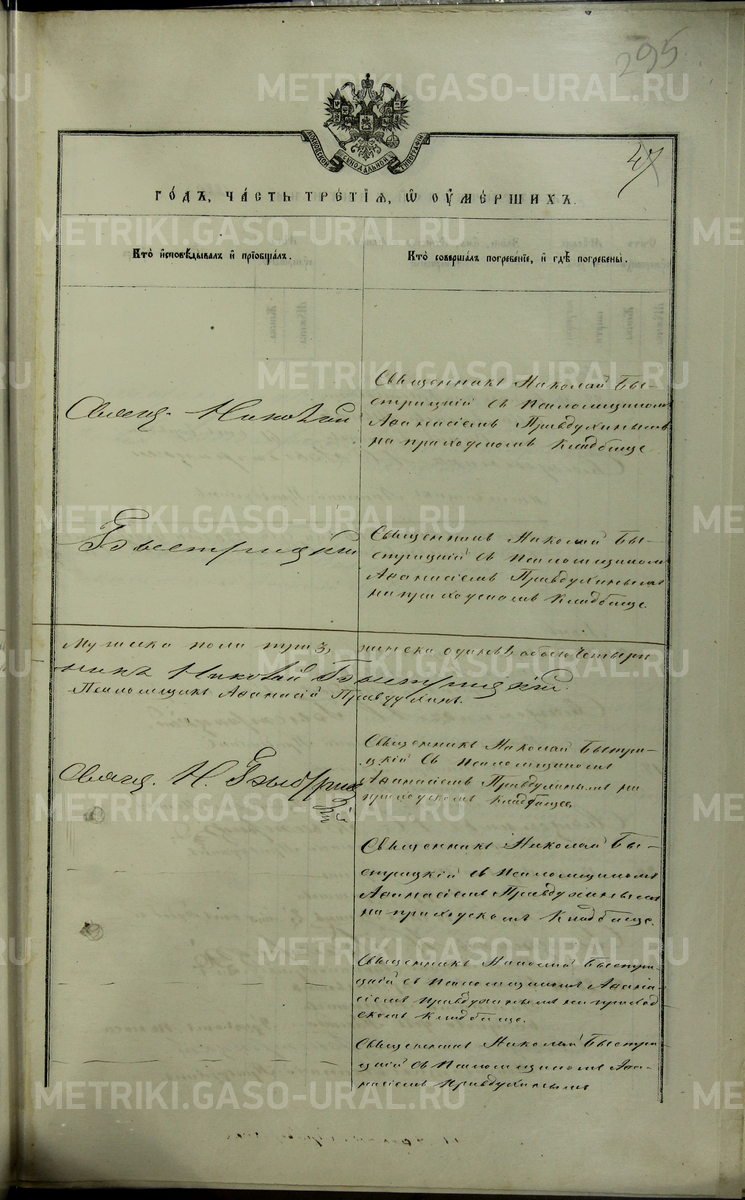 295
МОСКОВСКОЙ СѴНОДАЛЬНОЙ ТИПОГРАФІИ
47
ГО́ДЪ, ЧА́СТЬ ТРЕ́ТІЯ, Ѿ ОУМЕ́РШИХЪ.
Кто̀ и҆сповѣ́дывалъ и҆ прїобща́лъ.
Кто̀ соверша́лъ погребе́нїе, и҆ гдѣ̀ погребены̀.
Свящ. Николай
Священникъ Николай Бы-
стрицкій съ Псаломщикомъ
Аѳанасіемъ Правдухинымъ
на приходскомъ кладбище.
Быстрицкій
Священникъ Николай Бы-
стрицкій съ Псаломщикомъ
Аѳанасіемъ Правдухинымъ
на приходскомъ кладбище.
Мужска пола три 3, женска одинъ, обоего четыре
никъ Николай Быстрицкій.
Псаломщикъ Аѳанасій Правдухинъ.
Свящ. Н. Быстрицкій
Священникъ Николай Быстри-
цкій съ Псаломщикомъ
Аѳанасіемъ Правдухинымъ на
приходскомъ кладбище.
Священникъ Николай Бы-
стрицкій съ Псаломщикомъ
Аѳанасіемъ Правдухинымъ
на приходскомъ кладбище.
Священникъ Николай Быстри-
цкій съ Псаломщикомъ Аѳана-
сіемъ Правдухинымъ на приход-
скомъ кладбище.
Священникъ Николай Быстри-
цкій съ Псаломщикомъ Аѳа-
насіемъ Правдухинымъ
METRIKI.GASO-URAL.RU